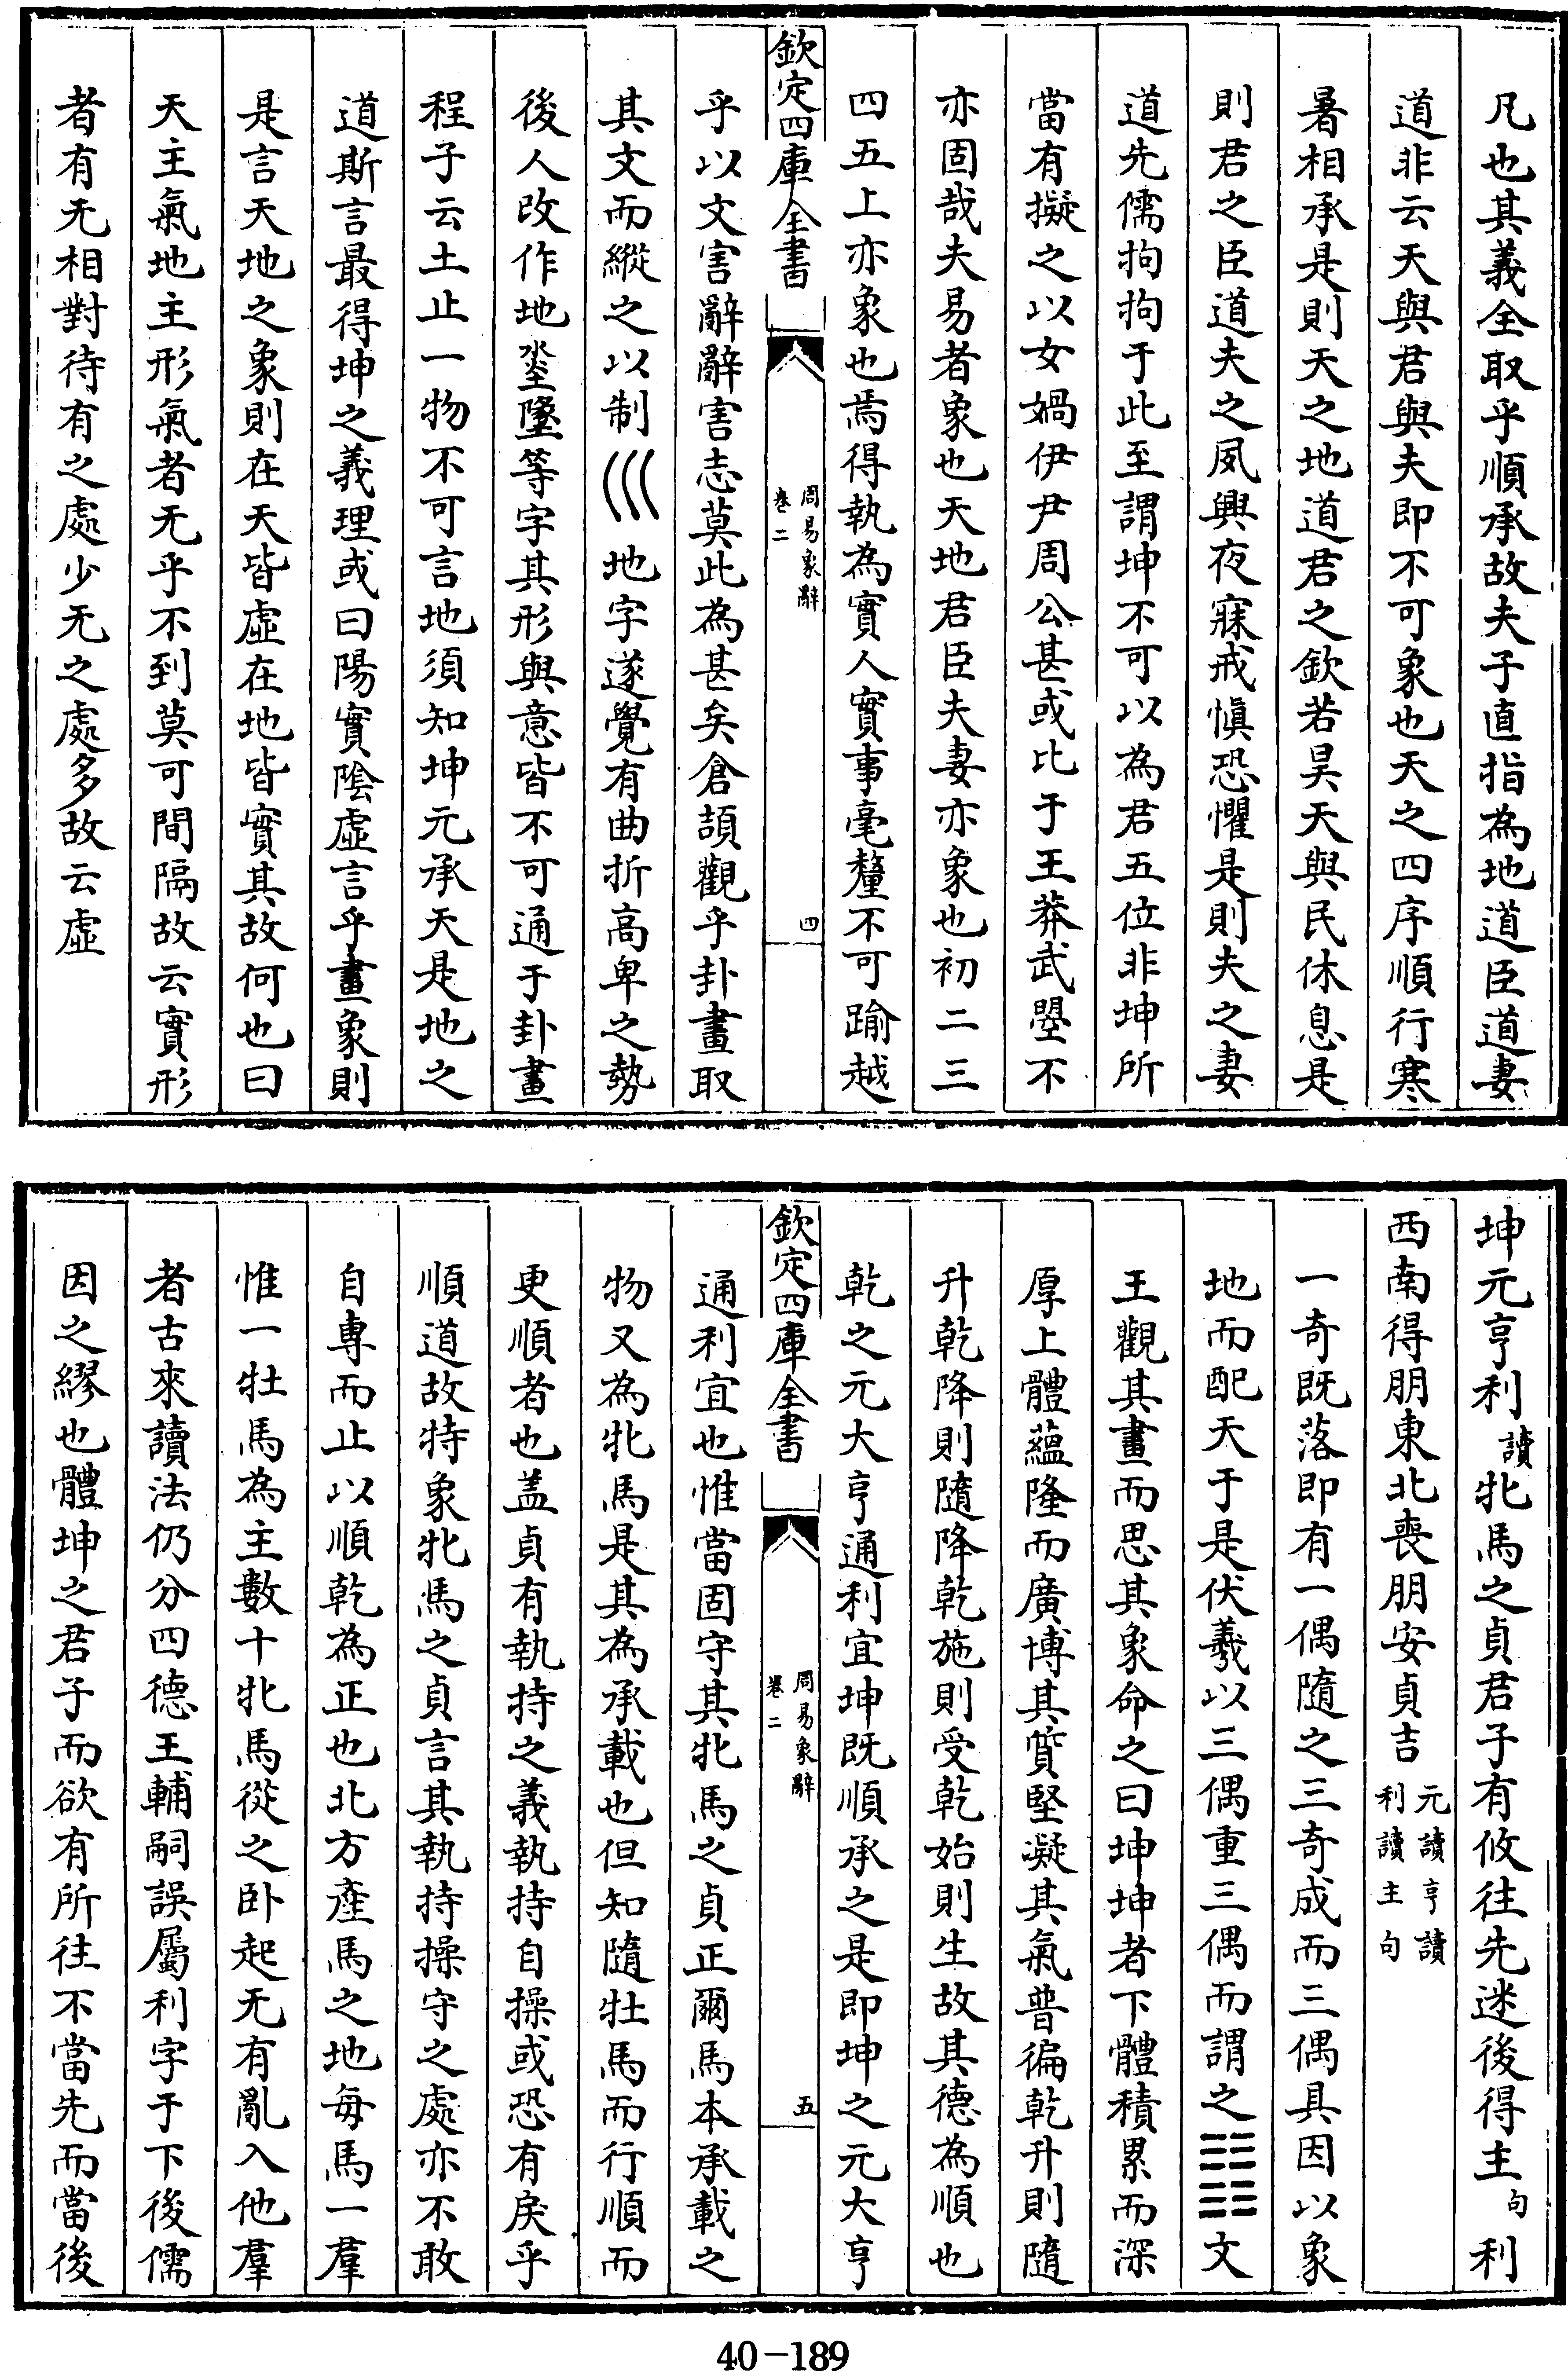 凡也其義全取乎順承故夫子直指為地道臣道妻
道非云天與君與夫即不可象也天之四序順行寒
暑相承是則天之地道君之欽若昊天與民休息是
則君之臣道夫之夙興夜寐戒慎恐懼是則夫之妻
道先儒拘拘于此至謂坤不可以為君五位非坤所
當有擬之以女媧伊尹周公甚或比于王莽武曌不
亦固哉夫易者象也天地君臣夫妻亦象也初二三
四五上亦象也焉得執為實人實事毫釐不可踰越
欽定四庫全書
周易象辭
卷二
四
乎以文害辭辭害志莫此為甚矣倉頡觀乎卦畫取
其文而縱之以制巛地字遂覺有曲折高卑之勢
後人改作地埊墬等字其形與意皆不可通于卦畫
程子云土止一物不可言地須知坤元承天是地之
道斯言最得坤之義理或曰陽實陰虛言乎畫象則
是言天地之象則在天皆虛在地皆實其故何也曰
天主氣地主形氣者无乎不到莫可間隔故云實形
者有无相對待有之處少无之處多故云虛
坤元亨利讀牝馬之貞君子有攸往先迷後得主句利
西南得朋東北喪朋安貞吉元讀亨讀利讀主句
一奇既落即有一偶隨之三奇成而三偶具因以象
地而配天于是伏羲以三偶重三偶而謂之☷☷文
王觀其畫而思其象命之曰坤坤者下體積累而深
厚上體蘊隆而廣博其質堅凝其氣普徧乾升則隨
升乾降則隨降乾施則受乾始則生故其德為順也
乾之元大亨通利宜坤既順承之是即坤之元大亨
欽定四庫全書
周易象辭
卷二
五
通利宜也惟當固守其牝馬之貞正爾馬本承載之
物又為牝馬是其為承載也但知隨牡馬而行順而
更順者也盖貞有執持之義執持自操或恐有戾乎
順道故特象牝馬之貞言其執持操守之處亦不敢
自專而止以順乾為正也北方產馬之地每馬一羣
惟一牡馬為主數十牝馬從之卧起无有亂入他羣
者古來讀法仍分四德王輔嗣誤屬利字于下後儒
因之繆也體坤之君子而欲有所往不當先而當後
40-189